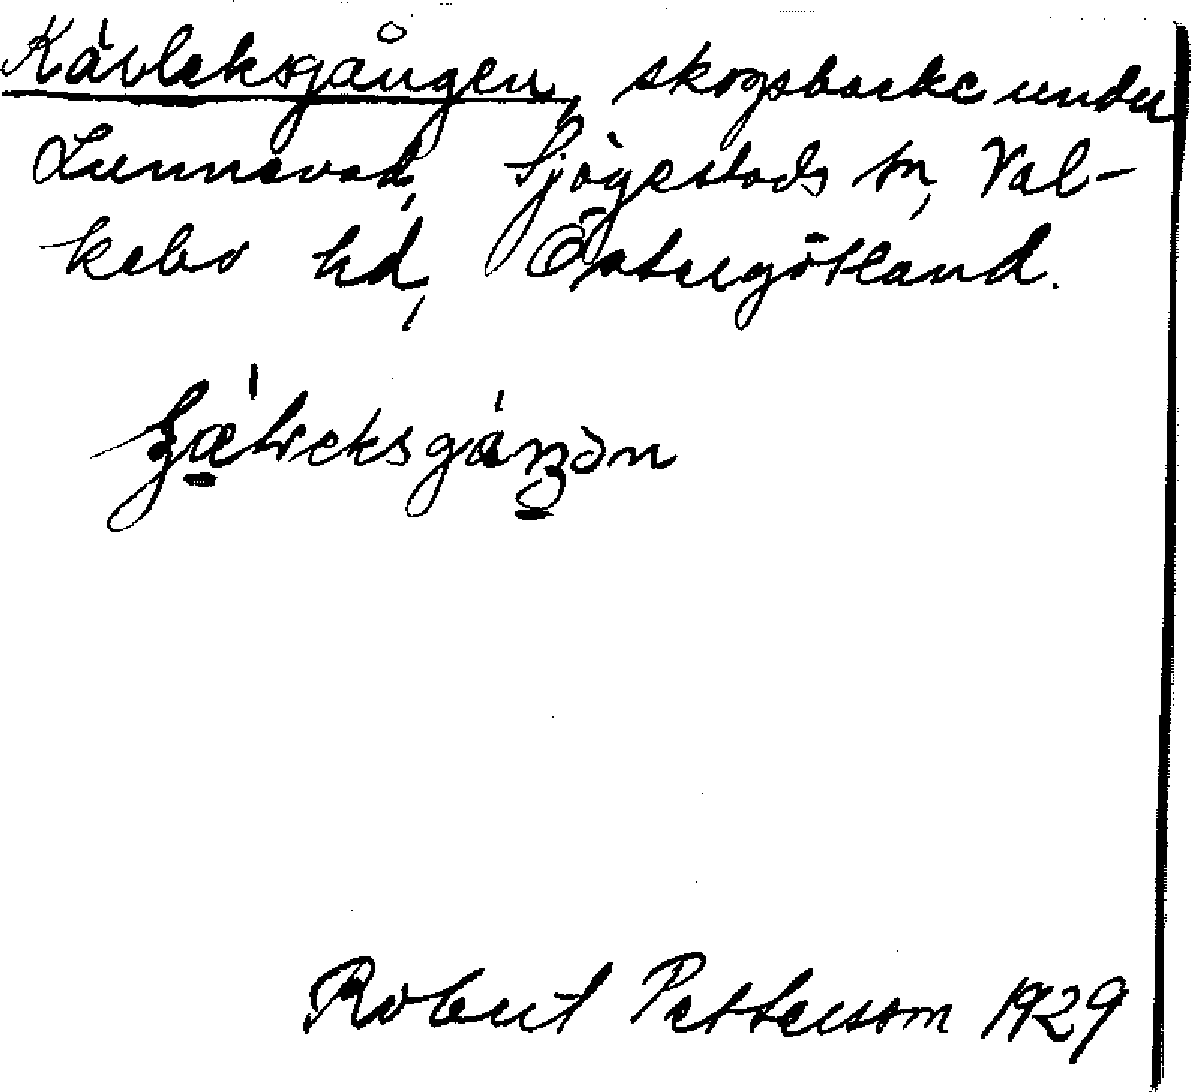 Kävleksgången, skogsbacke under
Lunnevad, Sjögestads sn, Val-
kebo hd, Östergötland.
Robert Petterson 1929